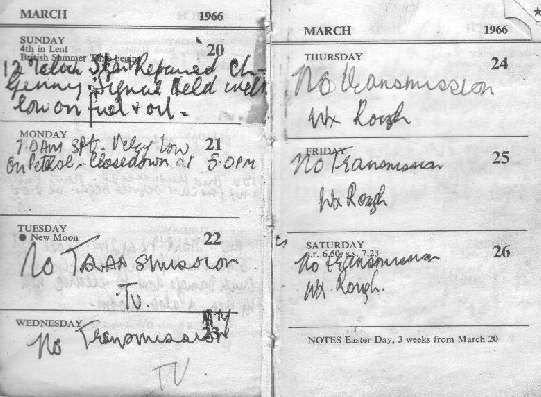 MARCH 1966
SUNDAY 20
4th in Lent
British Summer Time begins
12 Start Repaired Ch-
Genny Signal Held well
low on fuel + oil -
MONDAY 21
7.0AM Low
on Petrol - Closedown at 5.0PM
TUESDAY 22
● New Moon
No TRANSmission
TV.
WEDNESDAY 23
No Transmission
TV
MARCH 1966
THURSDAY 24
No transmission
Wx Rough
FRIDAY 25
No Transmission
Wx Rough
SATURDAY 26
s.r. 6.50 s.s. 7.23
No Transmission
Wx Rough.
NOTES Easter Day, 3 weeks from March 20